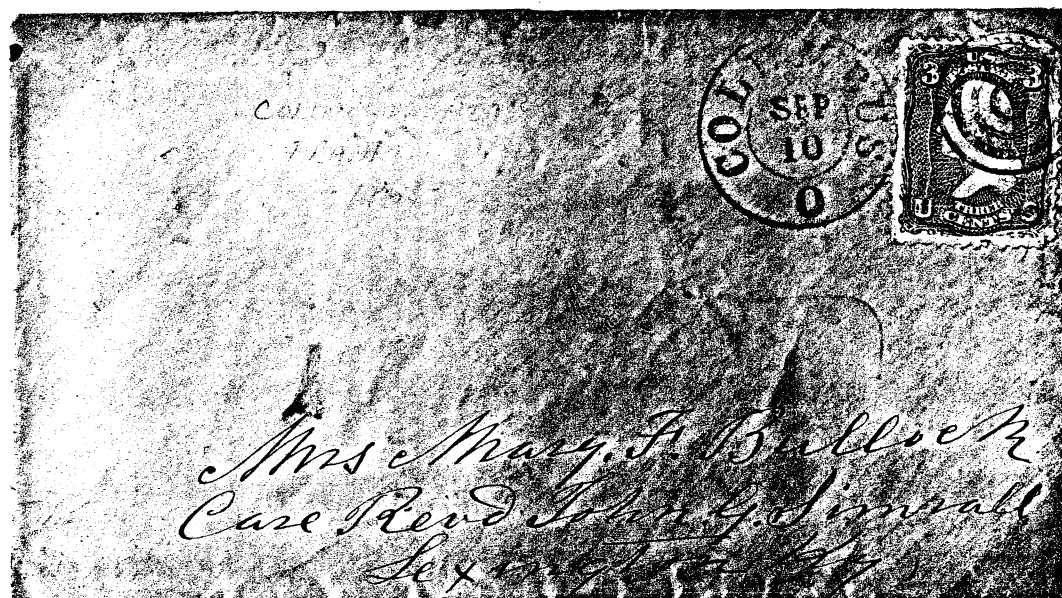 COL US
SEP
10
O
3 U 3
THREE
CENTS
Mrs Mary. F. Bullock
Care Revd John G. Simrall
Lexington Ky